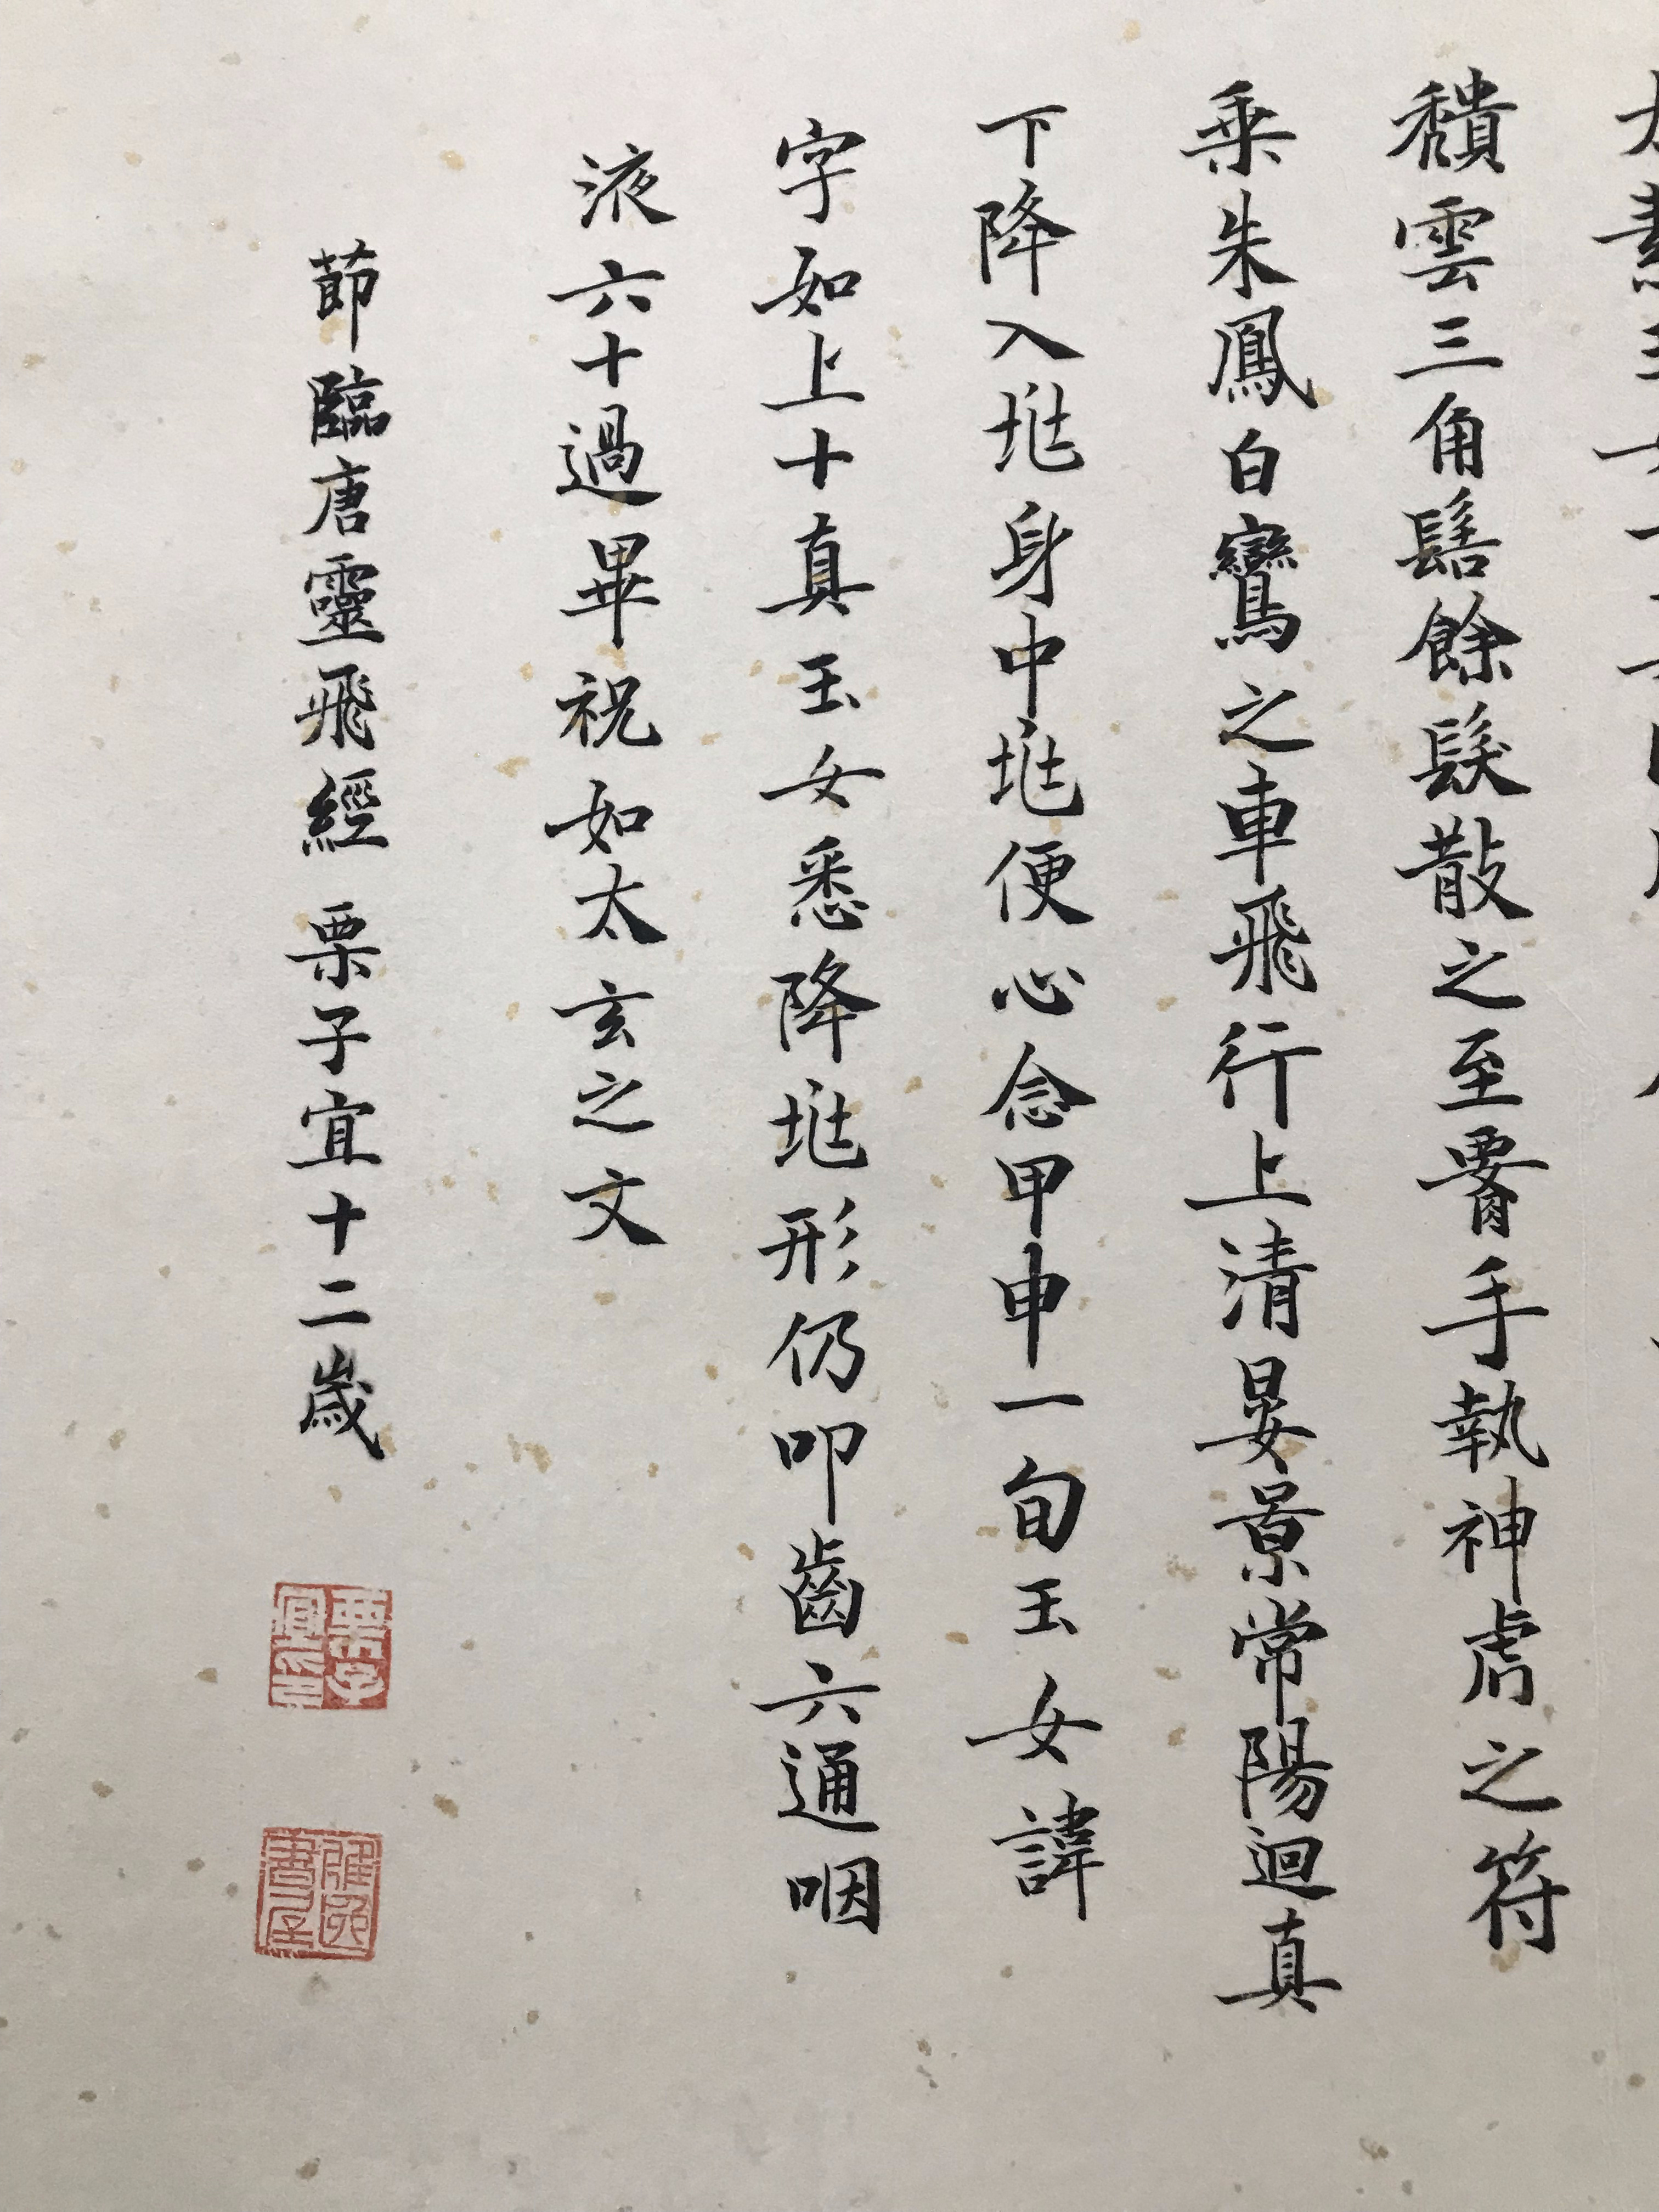 頽雲三角髻餘髮散之至腰手執神虎之符
乗朱鳳白鸞之車飛行上清晏景常陽迴真
下降入兆身中兆便心念甲申一旬玉女諱
字如上十真玉女悉降兆形仍叩齒六通咽
液六十過畢祝如太玄之文
節臨唐靈飛經 栗子宜十二歲
栗子宜印